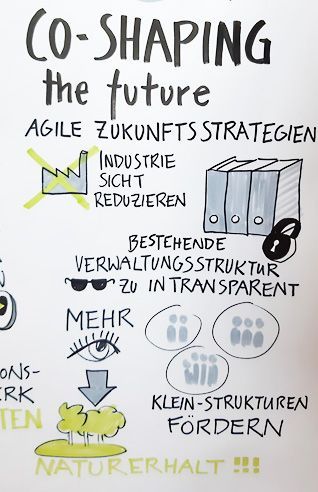 CO-SHAPING
the future
AGILE ZUKUNFTSSTRATEGIEN
INDUSTRIE
SICHT
REDUZIEREN
BESTEHENDE
VERWALTUNGSSTRUKTUR
ZU INTRANSPARENT
MEHR
KLEIN-STRUKTUREN
FÖRDERN
ONS-
ERK
TEN
NATURERHALT !!!